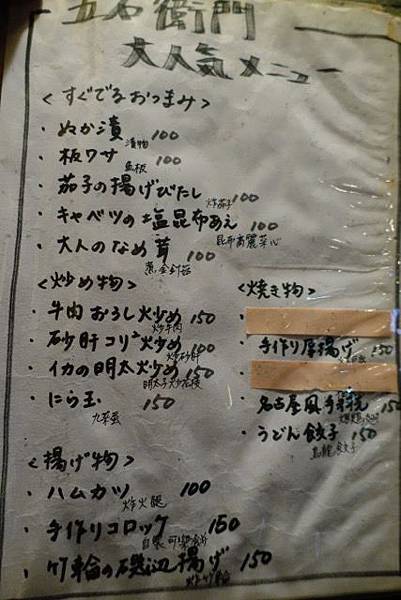 五右衛門
大人気メニュー
<すぐでるおつまみ>
・ぬか漬 100
漬物
・板ワサ 100
魚板
・茄子の揚げびたし 100
炸茄子
・キャベツの塩昆布あえ 100
昆布高麗菜心
・大人のなめ茸 100
金針菇
<炒め物>
・牛肉おろし炒め 150
炒牛肉
・砂肝コリコリ炒め 100
炒砂肝
・イカの明太炒め 150
明太子炒花枝
・にら玉 150
九菜蛋
<揚げ物>
・ハムカツ 100
炸火腿
・手作りコロッケ 150
自製可樂餅
・竹輪の磯辺揚げ 150
<焼き物>
・手作り厚揚げ 150
・名古屋風手羽先
・うどん餃子 150
烏龍餃子